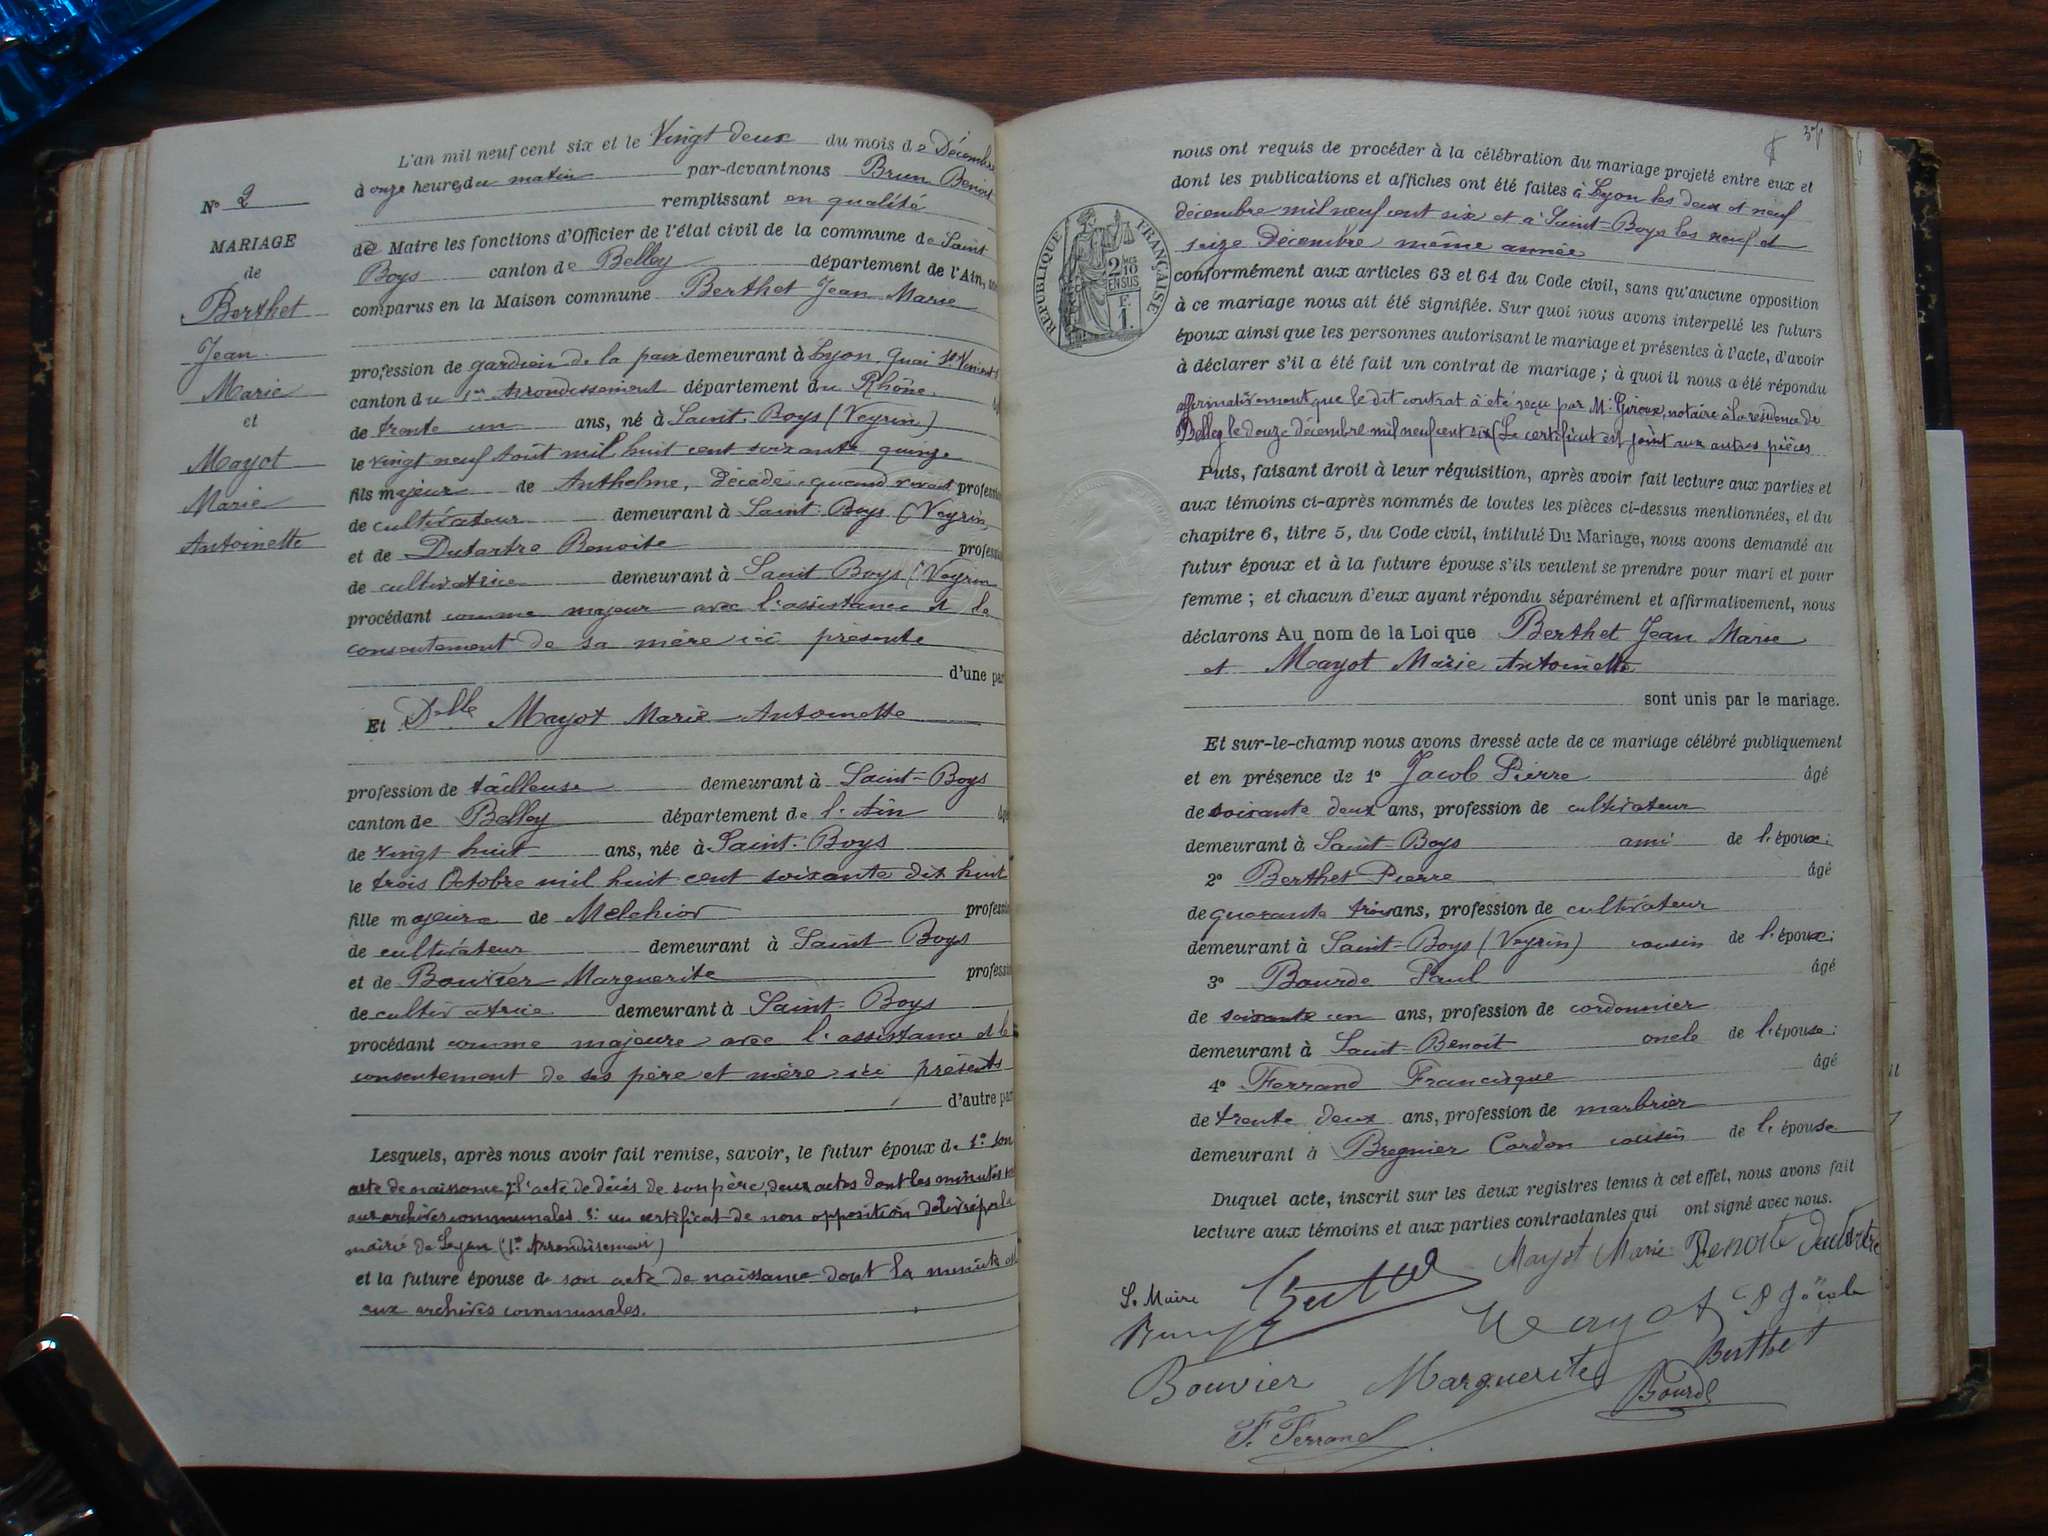 N° 2
MARIAGE
de
Berthet
Jean
Marie
et
Mayot
Marie
Antoinette
L'an mil neuf cent six et le Vingt deux du mois de Décembre
à onze heures du matin par-devant nous Brun Benoit
remplissant en qualité
de Maire les fonctions d'Officier de l'état civil de la commune de Saint
Boys canton de Belley département de l'Ain,
comparus en la Maison commune Berthet Jean Marie
profession de gardien de la paix demeurant à Lyon, Quai St Vincent
canton du 1er Arrondissement département du Rhône
de trente un ans, né à Saint-Boys (Veyrin)
le vingt neuf Août mil huit cent soixante quinze
fils majeur de Anthelme, Décédé, quand vivait profession
de cultivateur demeurant à Saint Boys (Veyrin
et de Dutartre Benoite profession
de cultivatrice demeurant à Saint Boys (Veyrin
procédant comme majeur avec l'assistance et le
consentement de sa mère ici présente
d'une part
Et Delle Mayot Marie Antoinette
profession de tailleuse demeurant à Saint-Boys
canton de Belley département de l'Ain âgé
de vingt huit ans, née à Saint-Boys
le trois Octobre mil huit cent soixante dix huit
fille majeure de Melchior profession
de cultivateur demeurant à Saint Boys
et de Bouvier Marguerite profession
de cultivatrice demeurant à Saint-Boys
procédant comme majeure avec l'assistance et le
consentement de ses père et mère ici présents
d'autre part
Lesquels, après nous avoir fait remise, savoir, le futur époux de 1° son
acte de naissance; l'acte de décès de son père, deux actes dont les minutes
aux archives communales 3: un certificat de non opposition délivré par la
mairie de Lyon (1er Arrondissement)
et la future épouse de son acte de naissance dont la minute est
aux archives communales.
nous ont requis de procéder à la célébration du mariage projeté entre eux et
dont les publications et affiches ont été faites à Lyon les deux et neuf
décembre mil neuf cent six et à Saint-Boys les neuf et
seize Décembre même année
conformément aux articles 63 et 64 du Code civil, sans qu'aucune opposition
à ce mariage nous ait été signifiée. Sur quoi nous avons interpellé les futurs
époux ainsi que les personnes autorisant le mariage et présentes à l'acte, d'avoir
à déclarer s'il a été fait un contrat de mariage; à quoi il nous a été répondu
affirmativement, que le dit contrat à été reçu par Me Giroux, notaire à la résidence de
Belley le douze décembre mil neuf cent six (Le certificat est joint aux autres pièces
Puis, faisant droit à leur réquisition, après avoir fait lecture aux parties et
aux témoins ci-après nommés de toutes les pièces ci-dessus mentionnées, et du
chapitre 6, titre 5, du Code civil, intitulé Du Mariage, nous avons demandé au
futur époux et à la future épouse s'ils veulent se prendre pour mari et pour
femme; et chacun d'eux ayant répondu séparément et affirmativement, nous
déclarons Au nom de la Loi que Berthet Jean Marie
et Mayot Marie Antoinette
sont unis par le mariage.
Et sur-le-champ nous avons dressé acte de ce mariage célébré publiquement
et en présence de 1° Jacob Pierre âgé
de soixante deux ans, profession de cultivateur
demeurant à Saint-Boys ami de l'époux;
2° Berthet Pierre âgé
de quarante trois ans, profession de cultivateur
demeurant à Saint-Boys (Veyrin) cousin de l'époux;
3° Bourde Paul âgé
de soixante un ans, profession de cordonnier
demeurant à Saint-Benoit oncle de l'épouse;
4° Ferrand Francisque âgé
de trente deux ans, profession de marbrier
demeurant à Bregnier Cordon cousin de l'épouse
Duquel acte, inscrit sur les deux registres tenus à cet effet, nous avons fait
lecture aux témoins et aux parties contractantes qui ont signé avec nous.
Mayot Marie Benoite Dutartre
Le Maire
Brun
Berthet
Mayot
P Jacob
Bouvier Marguerite
Berthet
Bourde
F. Ferrand
RÉPUBLIQUE FRANÇAISE
2/10
EN SUS
F.
1.